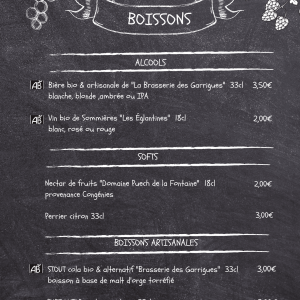 BOISSONS
ALCOOLS
AB Bière bio & artisanale de "La Brasserie des Garrigues" 33cl 3,50€
blanche, blonde ,ambrée ou IPA
AB Vin bio de Sommières "Les Églantines" 18cl 2,00€
blanc, rosé ou rouge
SOFTS
Nectar de fruits "Domaine Puech de la Fontaine" 18cl 2,00€
provenance Congénies
Perrier citron 33cl 3,00€
BOISSONS ARTISANALES
AB STOUT cola bio & alternatif "Brasserie des Garrigues" 33cl 3,00€
boisson à base de malt d'orge torréfié